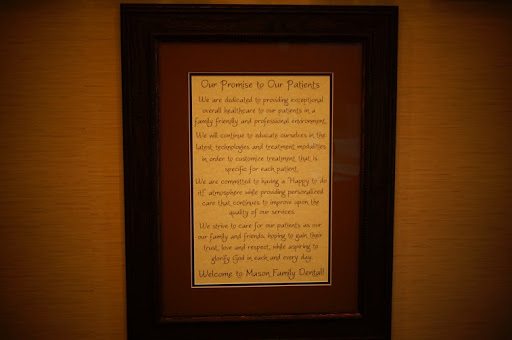 Our Promise to Our Patients
We are dedicated to providing exceptional
overall healthcare to our patients in a
family friendly and professional environment.
We will continue to educate ourselves in the
latest technologies and treatment modalities
in order to customize treatment that is
specific for each patient.
We are committed to having a "Happy to do
it!" atmosphere while providing personalized
care that continues to improve upon the
quality of our services.
We strive to care for our patients as our
our family and friends, hoping to gain their
trust, love and respect, while aspiring to
glorify God in each and every day.
Welcome to Mason Family Dental!